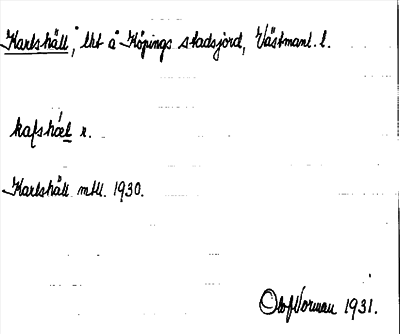 Karlshäll, lht å Köpings stadsjord, Västmanl. l.
kaʃshæ̍l r.
Karlshäll mtll. 1930.
Olof Norman 1931.